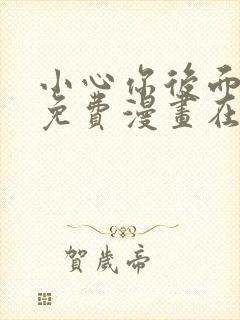 小心你後面
免費漫畫在
賀歲帝